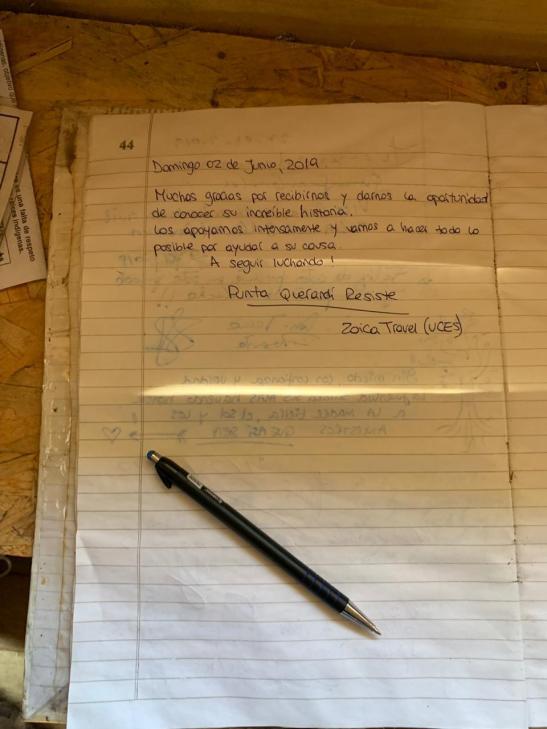 44
Domingo 02 de Junio, 2019
Muchas gracias por recibirnos y darnos la oportunidad
de conocer su increíble historia.
Los apoyamos intensamente y vamos a hacer todo lo
posible por ayudar a su causa.
A seguir luchando!
Punta Querandí Resiste
Zoica Travel (UCES)
es una falta de respeto
indígenas.